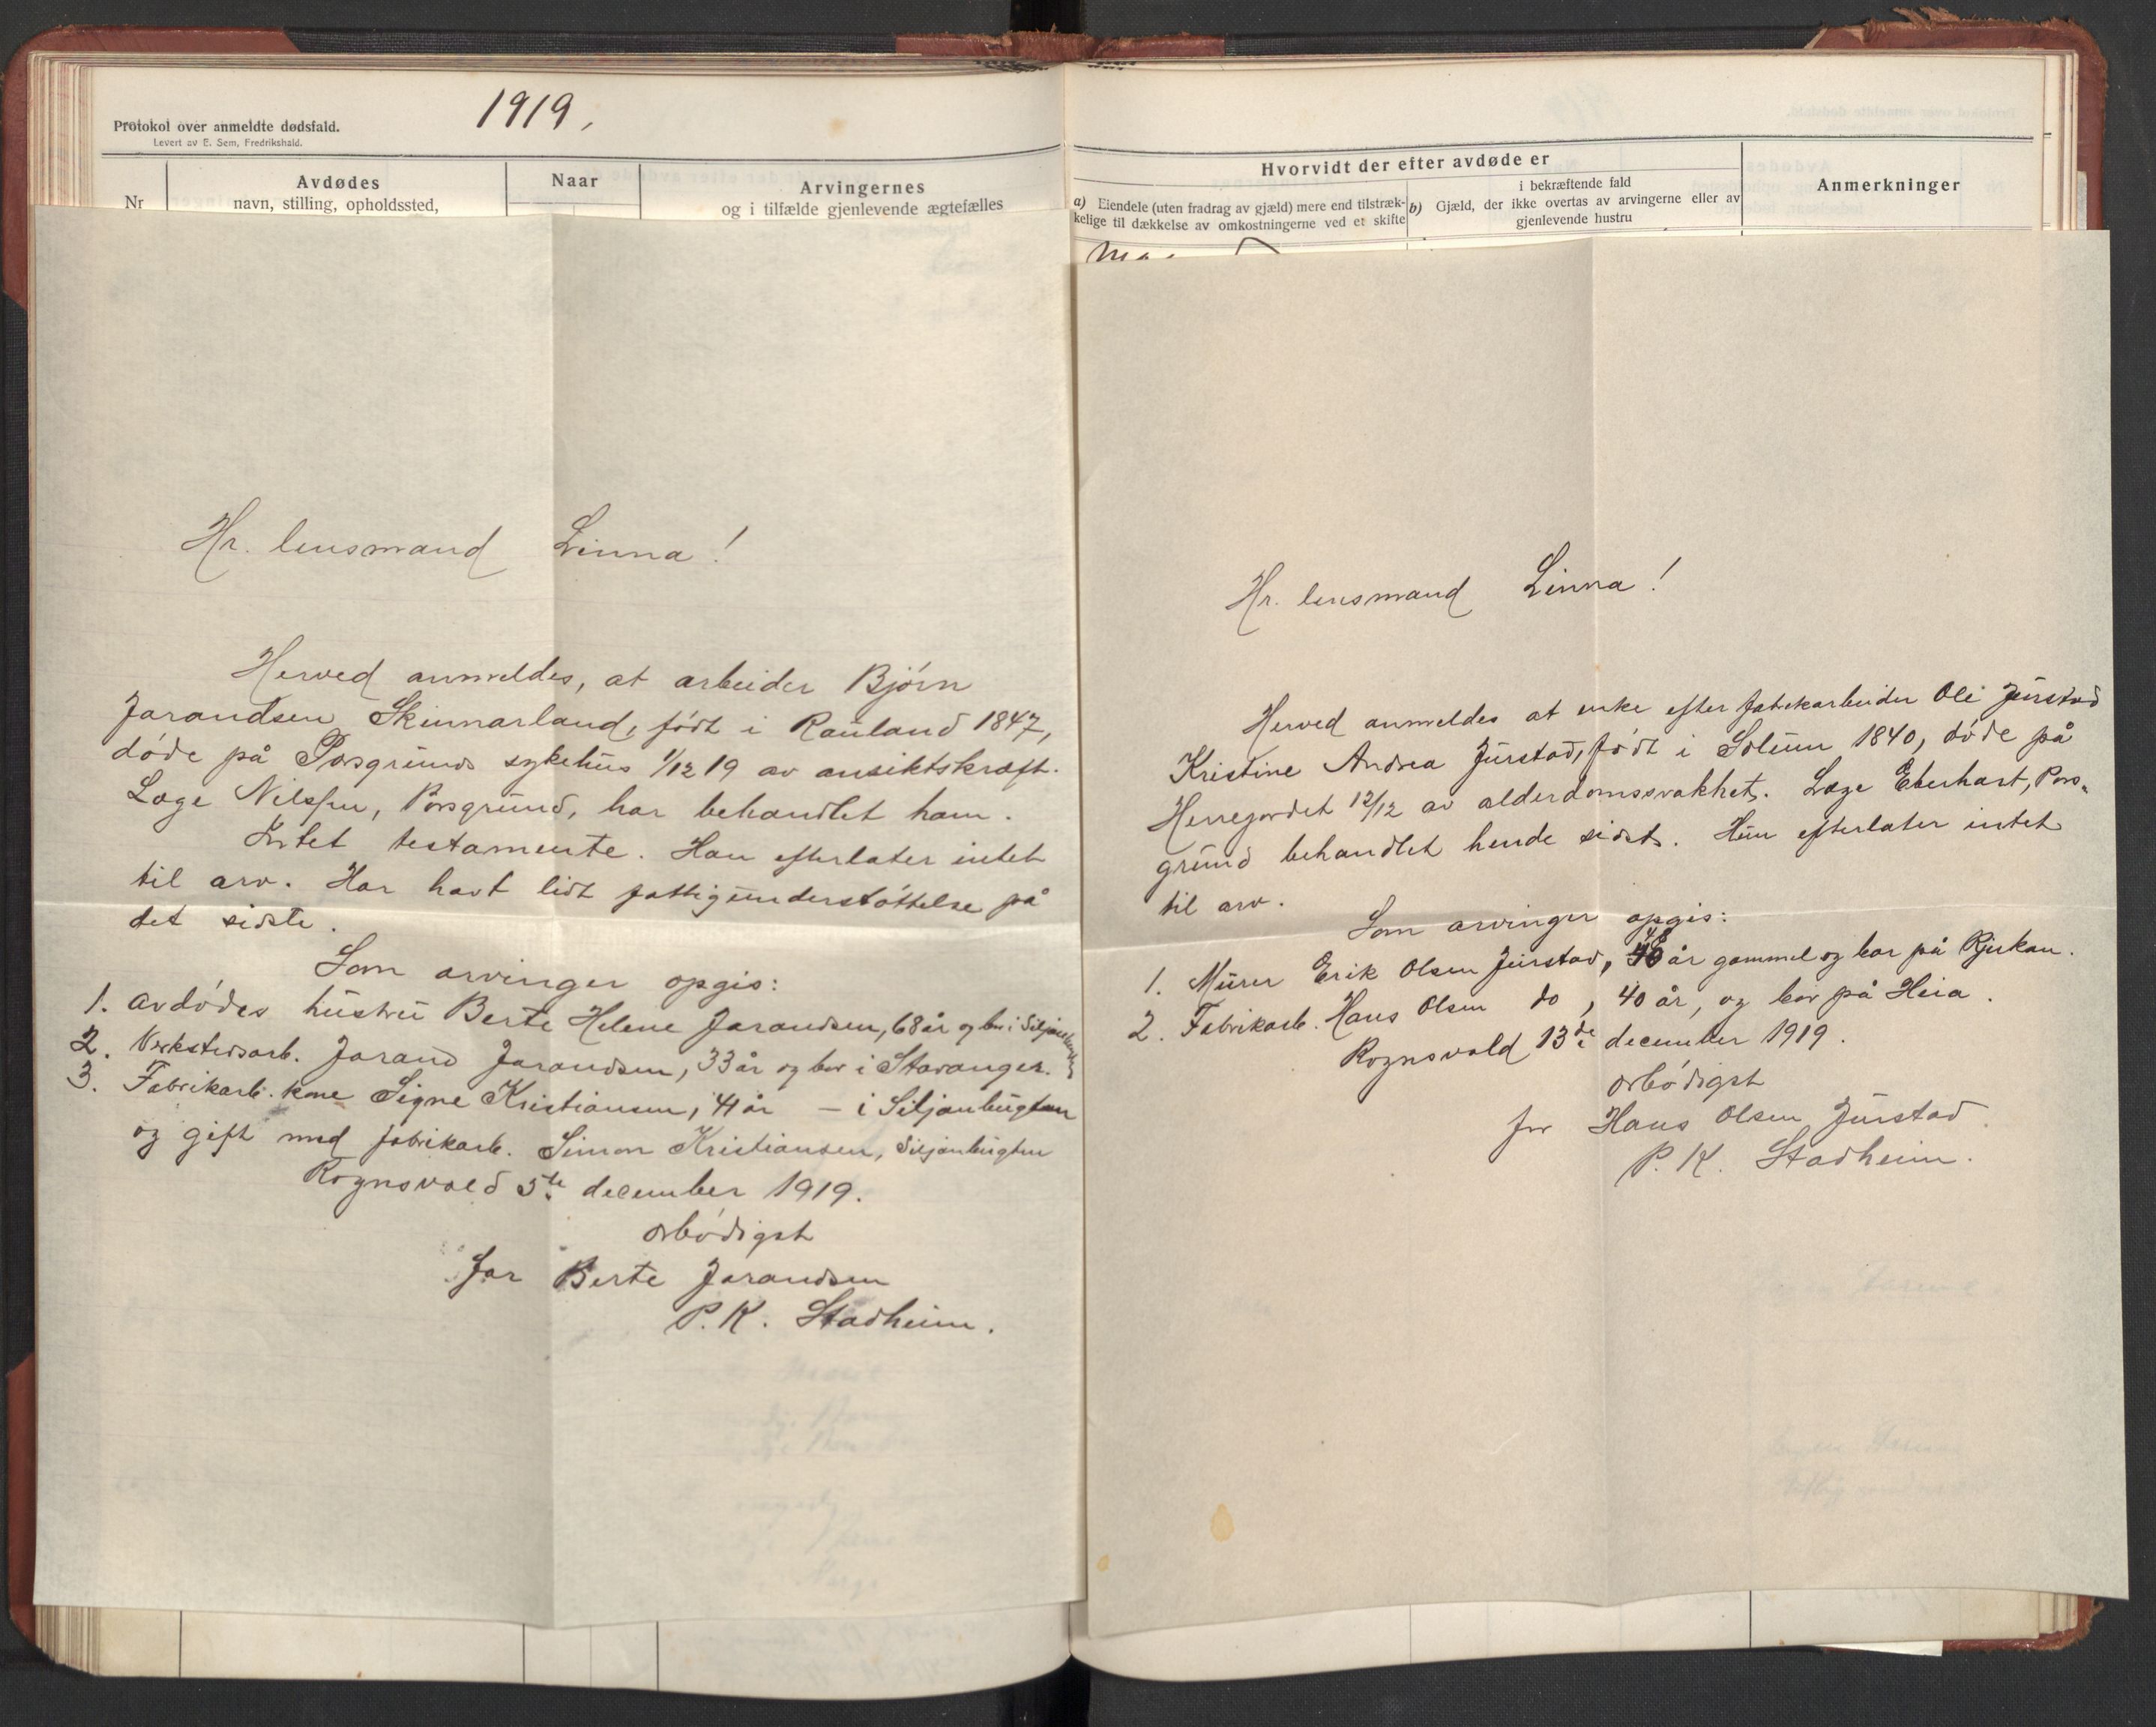 1919,
Protokol over anmeldte dødsfald.
Levert av E. Sem, Fredrikshald.
Nr
Avdødes
navn, stilling, opholdssted,
Naar
Arvingernes
og i tilfælde gjenlevende ægtefælles
Hr. lensmand Linna!
Herved anmeldes, at arbeider Bjørn
Jarandsen Skinnarland, født i Rauland 1847,
døde på Porsgrunds sykehus 1/12 19 av ansiktskræft.
Læge Nilssen, Porsgrund, har behandlet ham.
Intet testamente. Han efterlater intet
til arv. Har havt lidt fattigunderstøttelse på
det sidste.
Som arvinger opgis:
1. Avdødes hustru Berte Helene Jarandsen, 68 år og bor i Siljanbugten
2. Verkstedsarb. Jarand Jarandsen, 33 år og bor i Stavanger.
3. Fabrikarb. kone Signe Kristiansen, 41 år — i Siljanbugten
og gift med fabrikarb. Simon Kristiansen, Siljanbugten
Rognsvold 5te december 1919.
ærbødigst
for Berte Jarandsen
P. K. Stadheim.
Hvorvidt der efter avdøde er
a) Eiendele (uten fradrag av gjæld) mere end tilstræk-
kelige til dækkelse av omkostningerne ved et skifte
b)
i bekræftende fald
Gjæld, der ikke overtas av arvingerne eller av
gjenlevende hustru
Anmerkninger
Hr. lensmand Linna!
Herved anmeldes at enke efter fabrikarbeider Ole Jurstad
Kristine Andrea Jurstad, født i Solum 1840, døde på
Herregordet 12/12 av alderdomssvakhet. Læge Eberhart, Pors-
grund behandlet hende sidst. Hun efterlater intet
til arv.
Som arvinger opgis:
1. Murer Erik Olsen Jurstad, 48 år gammel og bor på Rjukan.
2. Fabrikarb. Hans Olsen do, 40 år, og bor på Heia.
Rognsvold 13de december 1919.
ærbødigst
for Hans Olsen Jurstad.
P. K. Stadheim.